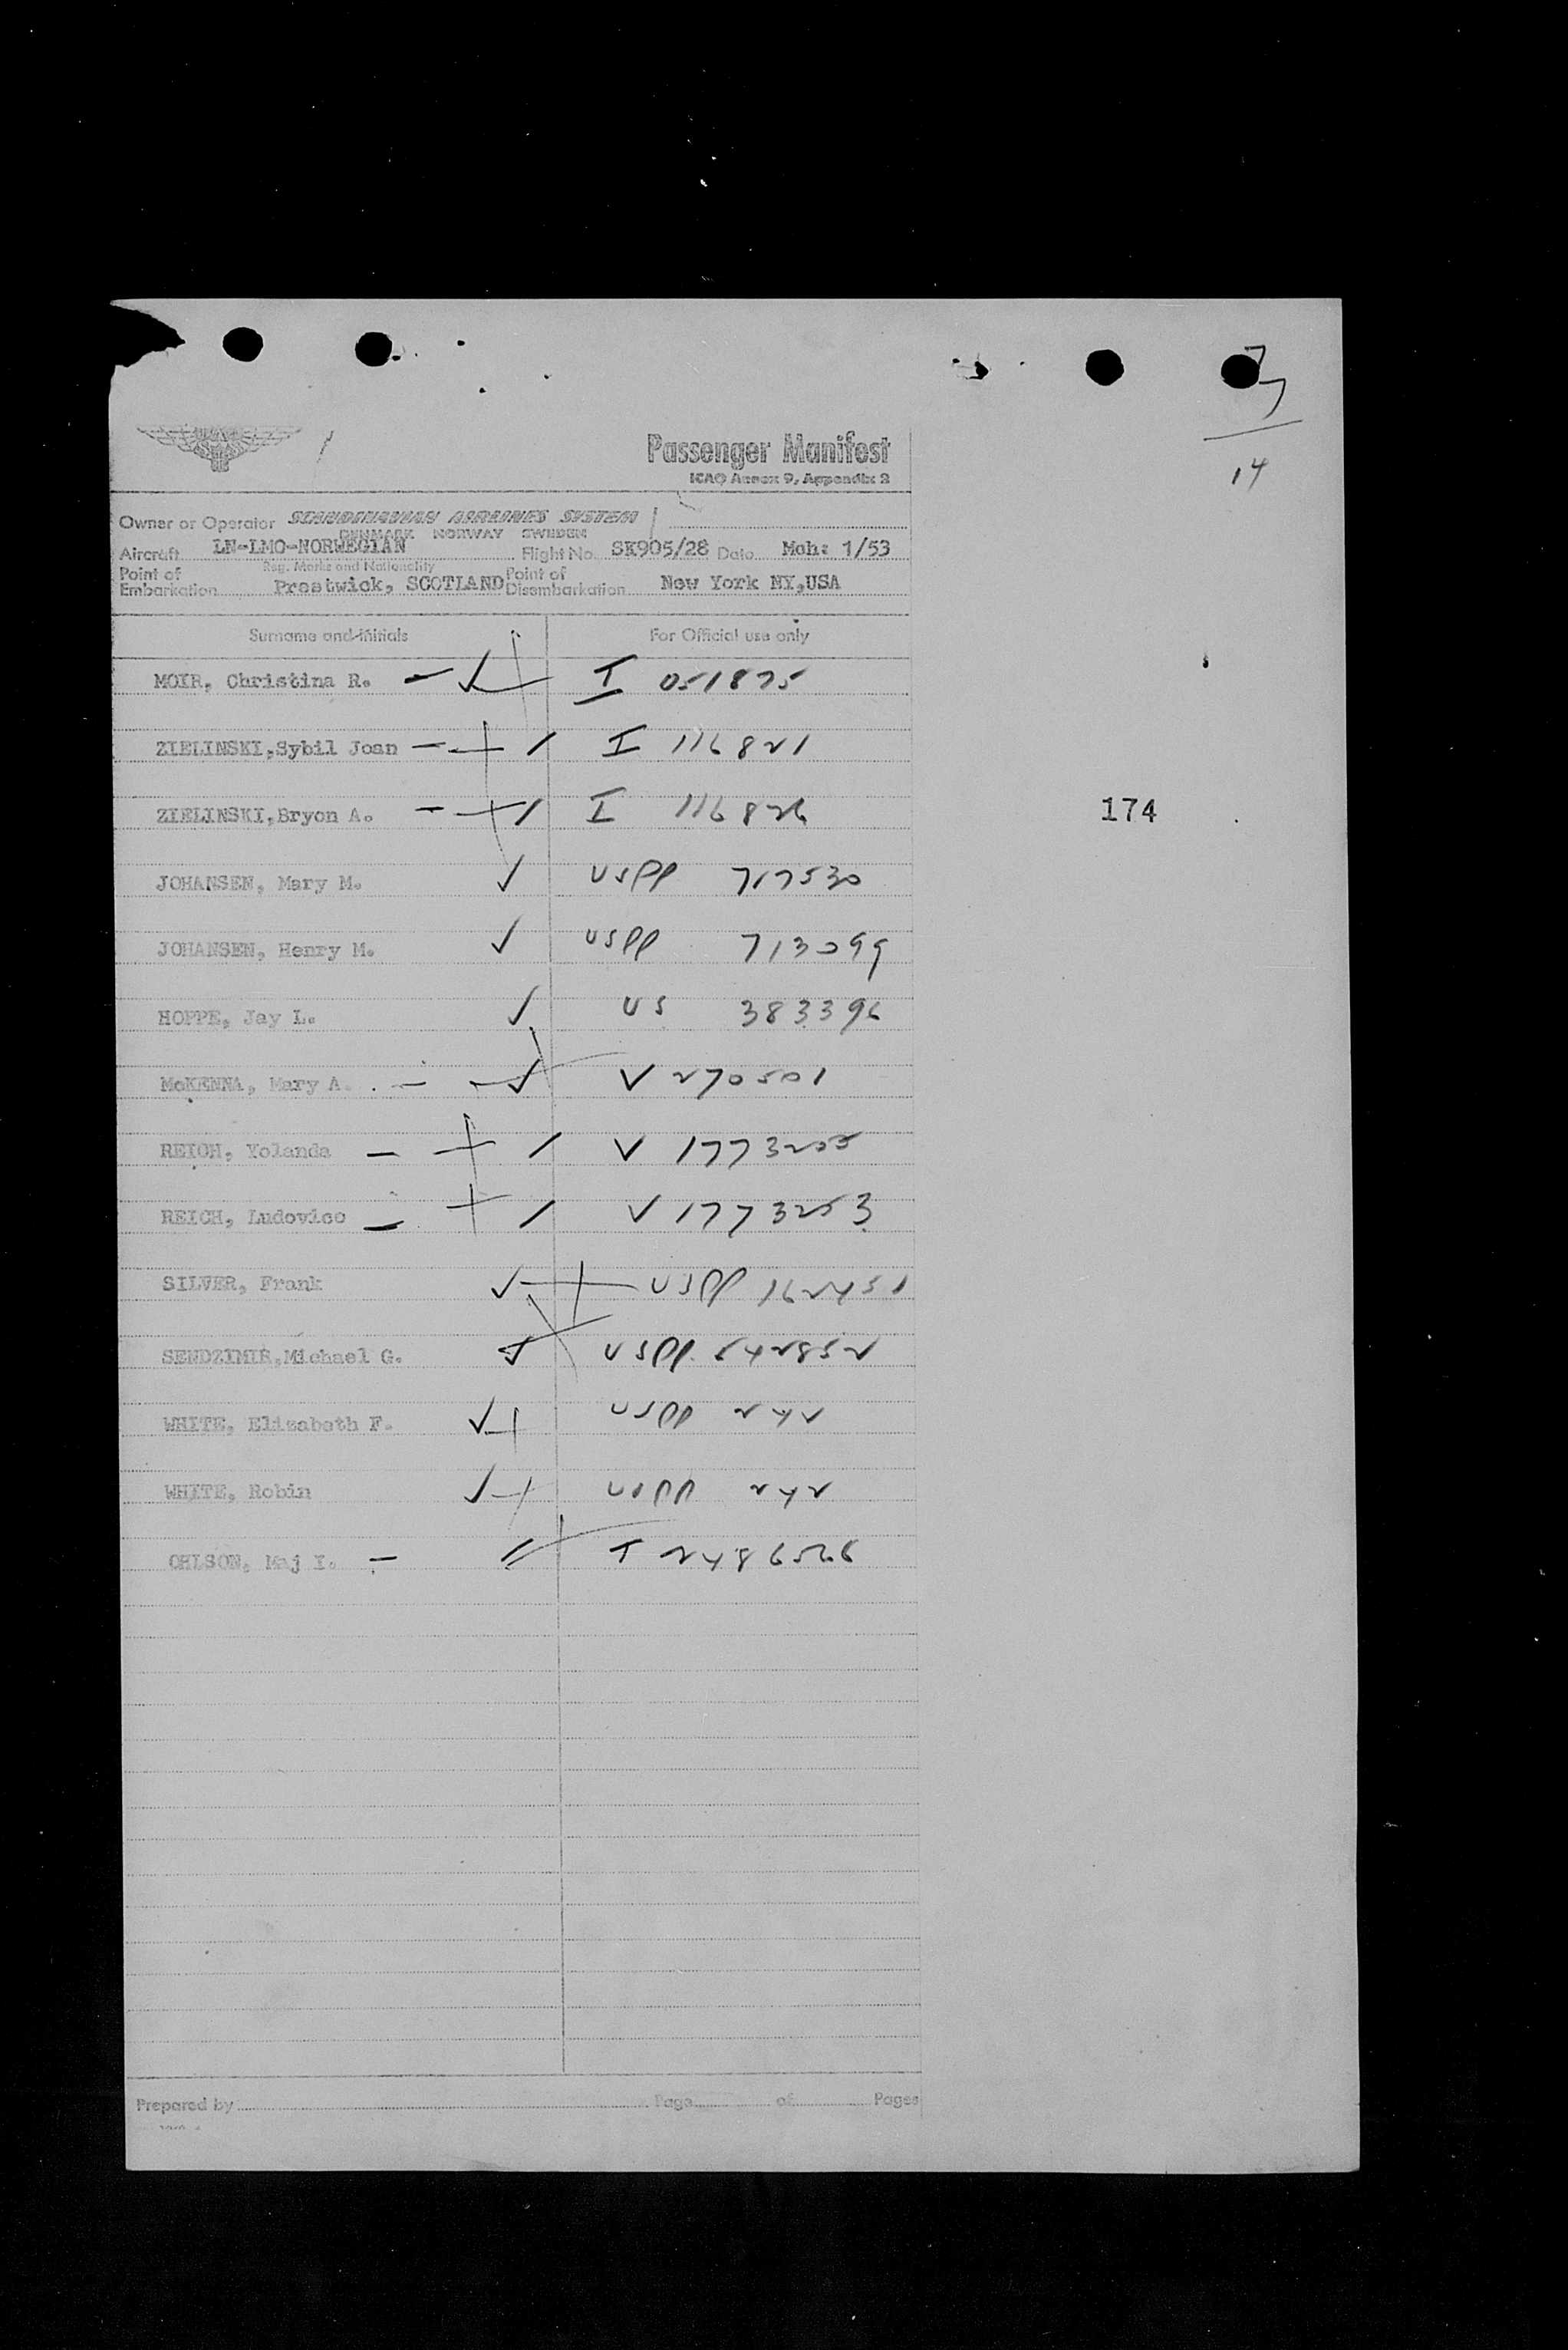 7
7
14
Passenger Manifest
ICAO Annex 9, Appendix 2
Owner or Operator SCANDINAVIAN AIRLINES SYSTEM
DENMARK NORWAY SWEDEN
Aircraft LN-LMO-NORWEGIAN Flight No. SK905/28 Date Mch: 1/53
Reg. Marks and Nationality
Point of Embarkation Prestwick, SCOTLAND Point of Disembarkation New York NY,USA
Surname and initials For Official use only
MOIR, Christina R. — I 051875
ZIELINSKI,Sybil Joan — I 116821
ZIELINSKI,Bryon A. — I 116826
174
JOHANSEN, Mary M. ✓ USPP 717530
JOHANSEN, Henry M. ✓ USPP 713099
HOPPE, Jay L. ✓ US 383396
McKENNA, Mary A. — ✓ V 270501
REICH, Yolanda — V 1773255
REICH, Ludovico — V 1773253
SILVER, Frank ✓ USPP 162451
SENDZIMIR,Michael G. USPP
WHITE, Elizabeth F. ✓ USPP 242
WHITE, Robin ✓ USPP 242
OHLSON, Maj I. — I
Prepared by Page of Pages